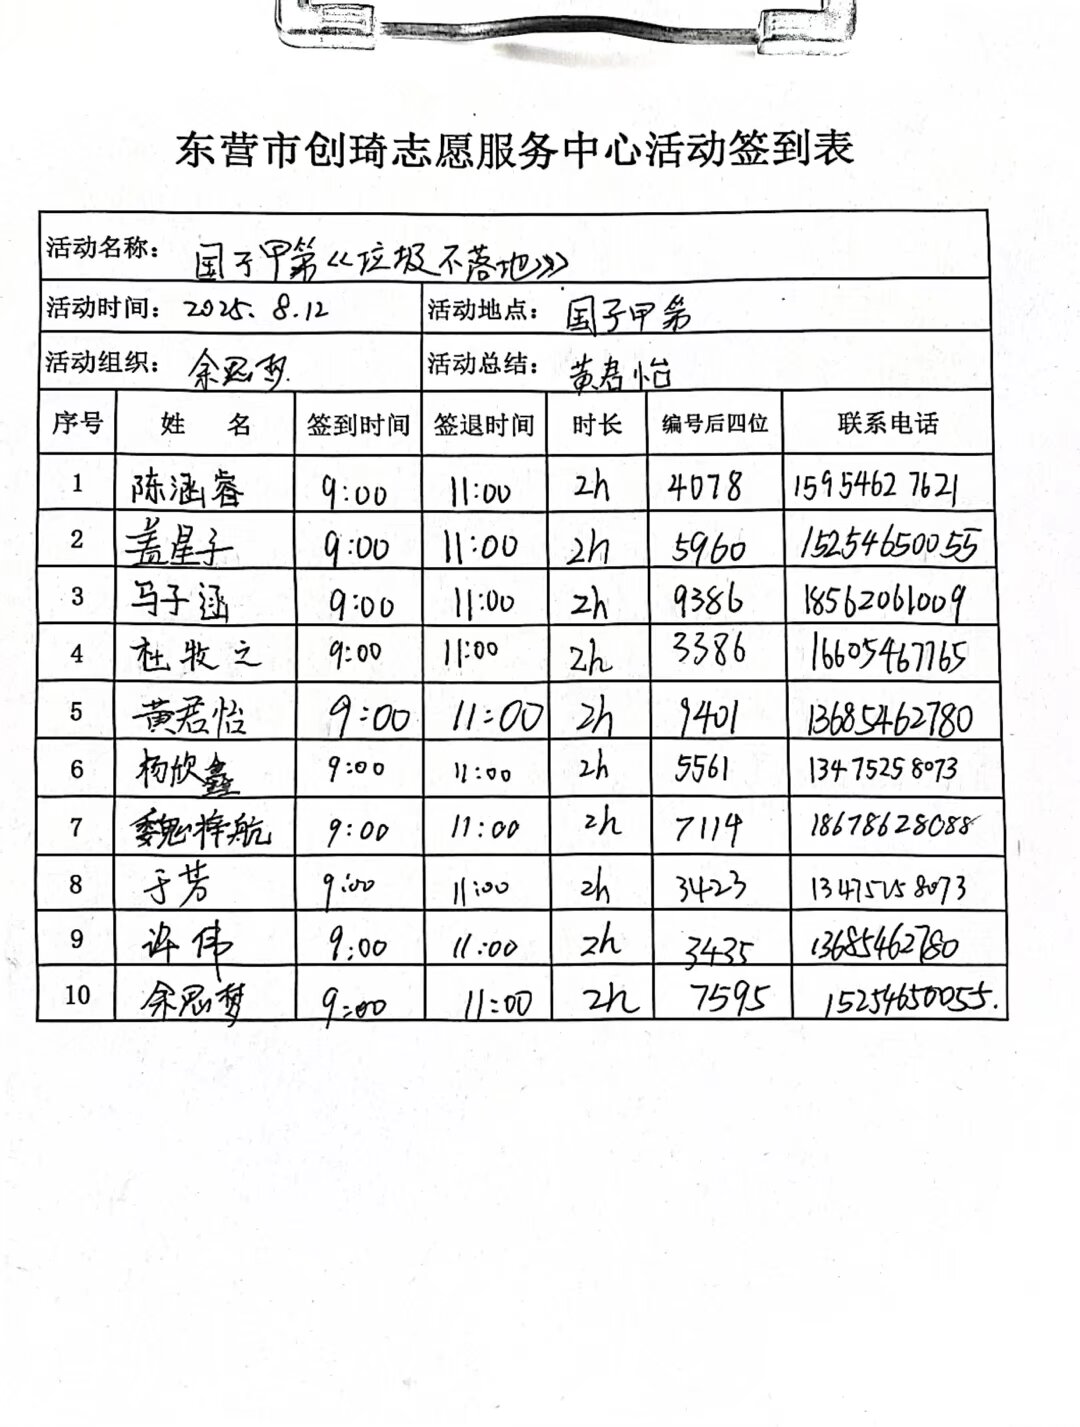 东营市创琦志愿服务中心活动签到表
活动名称： 国子甲第《垃圾不落地》
活动时间： 2025.8.12 活动地点： 国子甲第
活动组织： 余思梦 活动总结： 黄君怡
序号 姓 名 签到时间 签退时间 时长 编号后四位 联系电话
1 陈涵睿 9:00 11:00 2h 4078 15954627621
2 盖星子 9:00 11:00 2h 5960 15254650055
3 马子涵 9:00 11:00 2h 9386 18562061009
4 杜牧之 9:00 11:00 2h 3386 16605467765
5 黄君怡 9:00 11:00 2h 9401 13685462780
6 杨欣鑫 9:00 11:00 2h 5561 13475258073
7 魏梓航 9:00 11:00 2h 7114 18678628088
8 于芳 9:00 11:00 2h 3423 13475258073
9 许伟 9:00 11:00 2h 3435 13685462780
10 余思梦 9:00 11:00 2h 7595 15254650055.